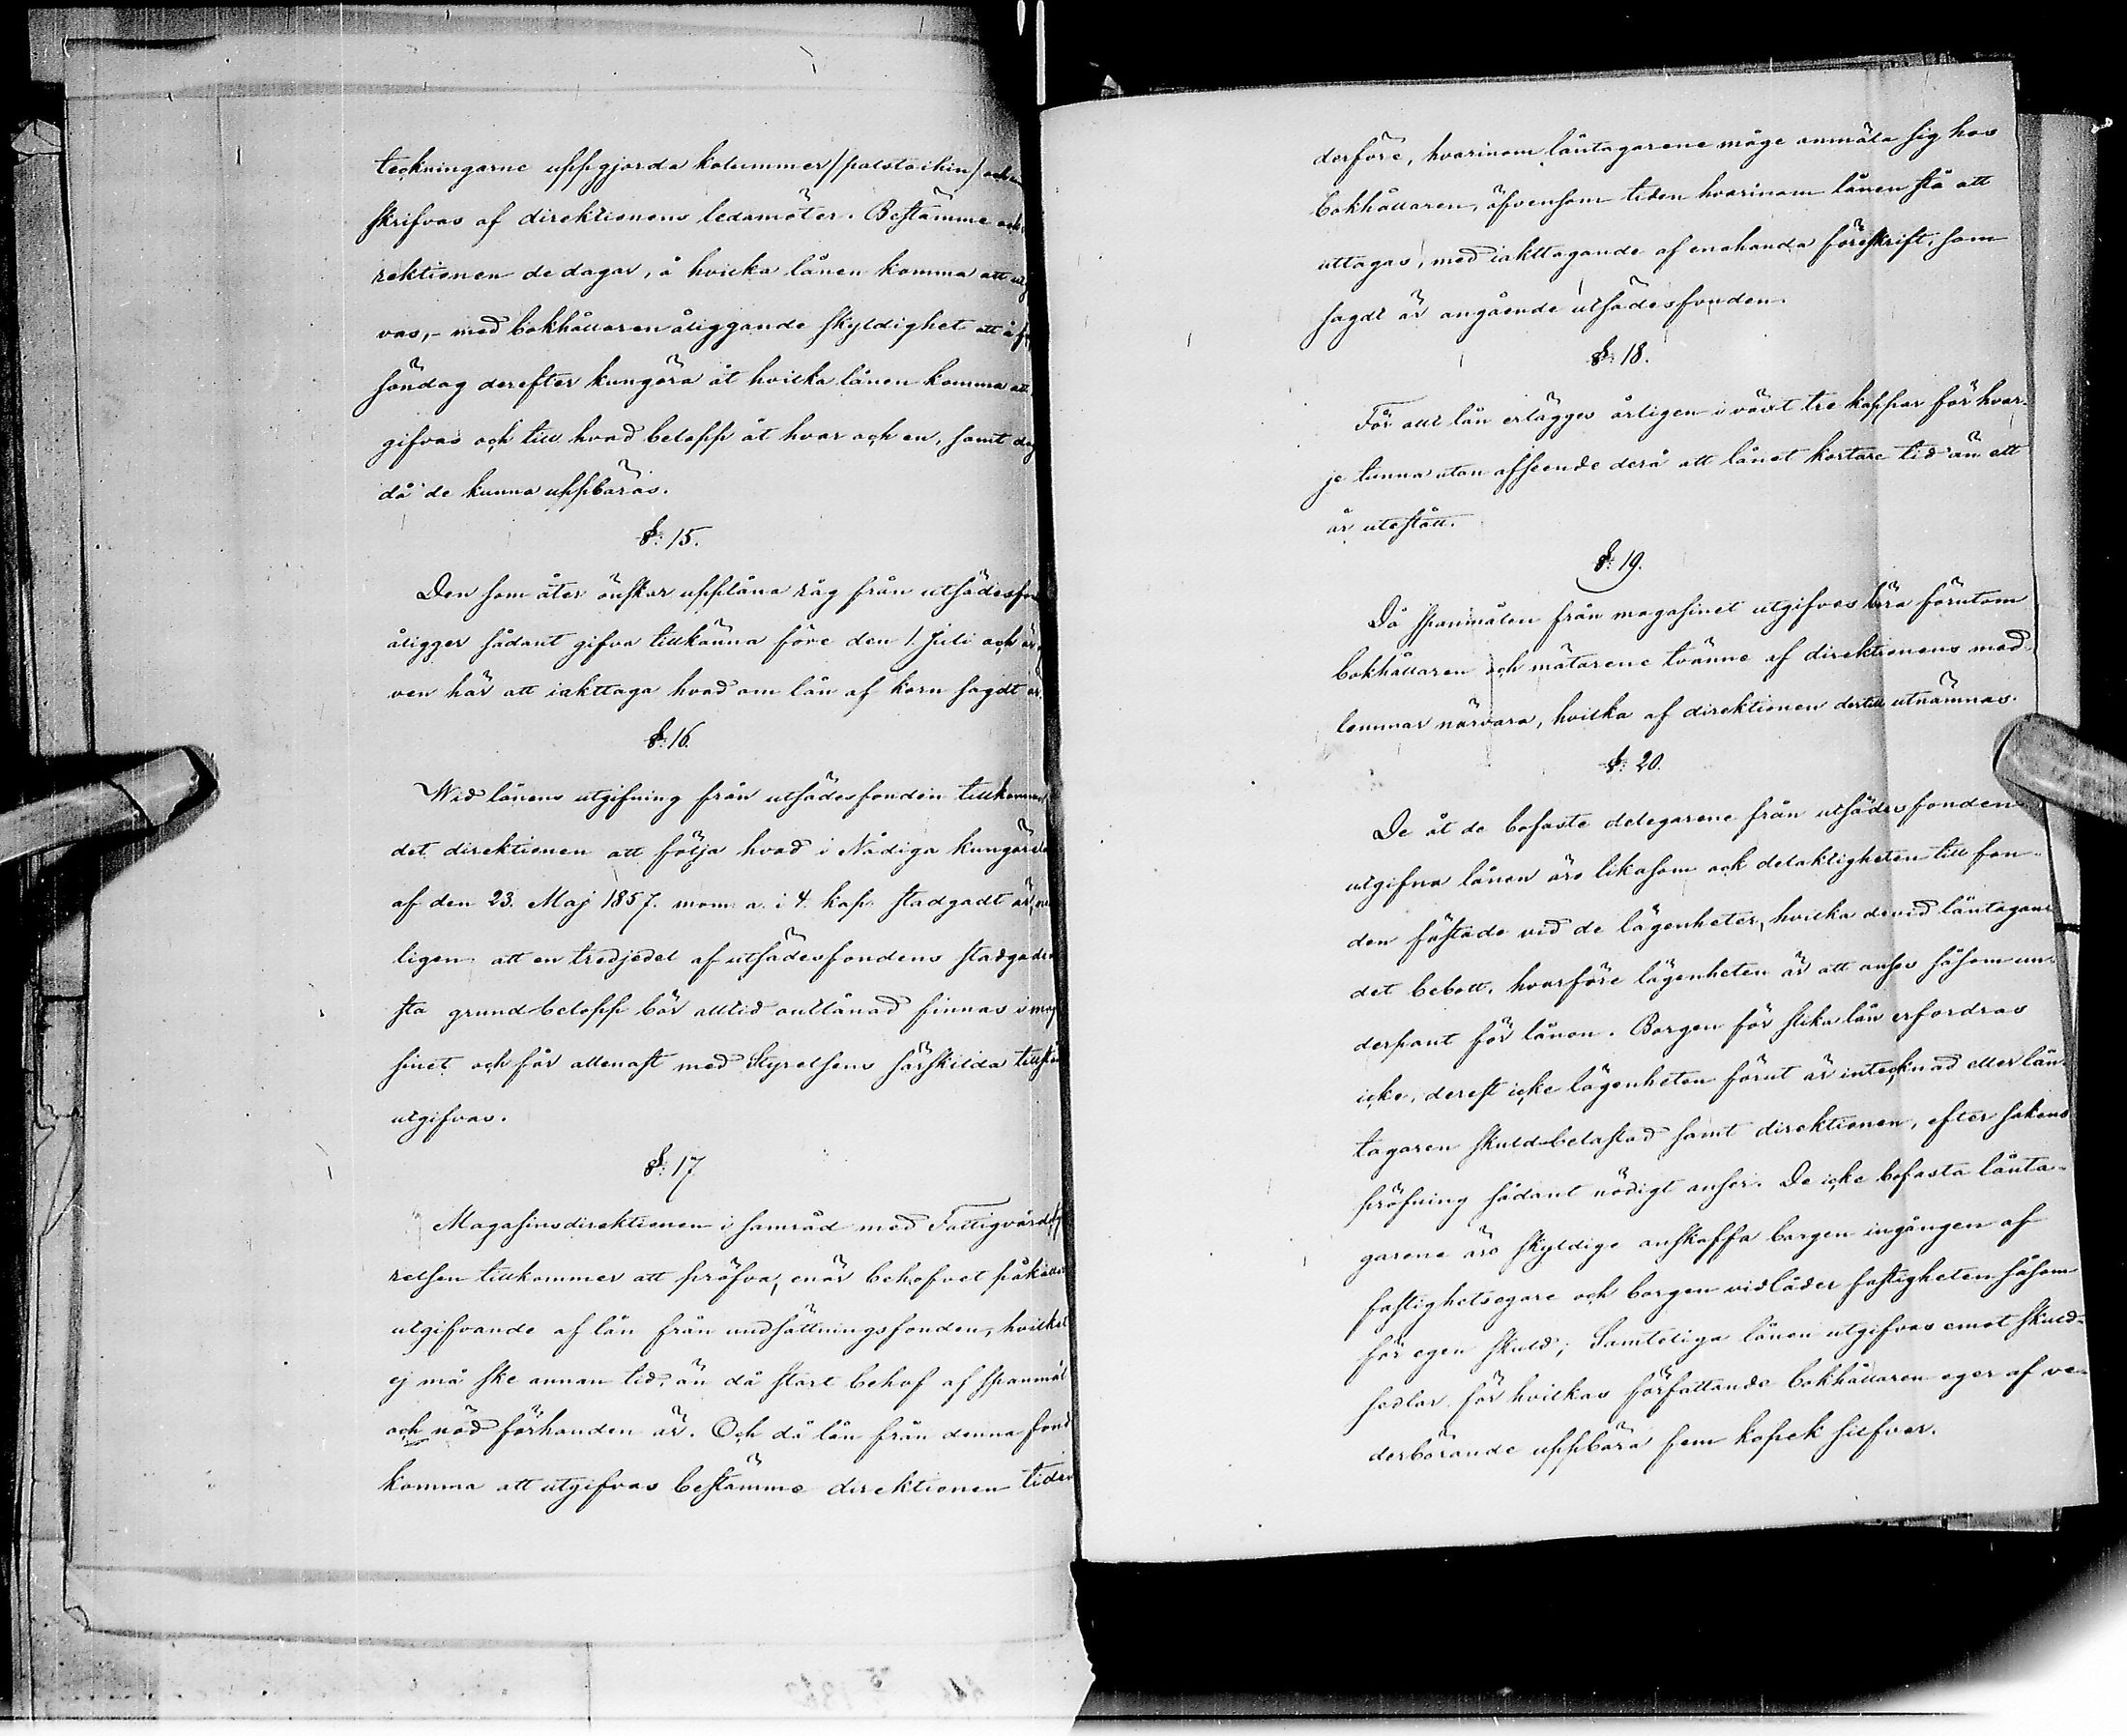 teckningarne uppgjorda kolummer /:palstoihin:/ och
skrifvas af direktionens ledamöter. Bestämme och
rektionen de dagar, å hvilka lånen komma att
vas, - med bokhållaren åliggande skyldighet att å
söndag derefter kungöra åt hvilka lånen komma att
gifvas och till hvad belopp åt hvar och en, samt dag
då de kunna uppbäras.
§: 15.
Den som åter önskar upplåna råg från utsädesfon
åligger sådant gifva tillkänna före den 1 Juli och
ven här att iakttaga hvad om lån af korn sagdt är.
§: 16.
Wid lånens utgifning från utsädesfonden tillkommer
det direktionen att följa hvad i Nådiga kungörelse
af den 23. Maj 1857. mom: a. i 4. kap. stadgadt är,
ligen att en tredjedel af utsädesfondens stadgade
sta grundbelopp bör alltid outlånad finnas i maga
sinet och får allenast med Styrelsens särskilda tillstånd
utgifvas.
§: 17
Magasinsdirektionen i samråd med Fattigvårdssty
relsen tillkommer att pröfva, enär behofvet påkallar
utgifvande af lån från undsättningsfonden, hvilket
ej må ske annan tid, än då stört behof af spanmål
och nöd förhanden är. Och då lån från denna fond
komma att utgifvas bestämme direktionen tiden
derföre, hvarinom låntagarene måge anmäla sig hos
bokhållaren, äfvensom tiden hvarinom lånen stå att
uttagas, med iakttagande af enahanda föreskrift, som
sagdt är angående utsädesfonden.
§: 18.
För allt lån erlägges årligen i växt tre kappar för hvar-
je tunna utan afseende derå att lånet kortare tid än ett
år utestått.
§: 19.
Då spanmålen från magasinet utgifves böra förutom
bokhållaren och mätarene tvänne af direktionens med-
lemmar närvara, hvilka af direktionen dertill utnämnas.
§: 20.
De åt de bofaste delegarene från utsädesfonden
utgifna lånen äro likasom ock delaktigheten till fon-
den fästade vid de lägenheter, hvilka de vid låntagan-
det bebott, hvarföre lägenheten är att anses såsom un-
derpant för lånen. Borgen för slika lån erfordras
icke, derest icke lägenheten förut är intecknad eller lån-
tagaren skuldbelastad samt direktionen, efter sakens
pröfning sådant nödigt anser. De icke bofasta lånta-
garene äro skyldige anskaffa borgen ingången af
fastighetsegare och borgen vidlåder fastigheten såsom
för egen skuld; Samteliga lånen utgifvas emot skuld-
sedlar för hvilkas författande bokhållaren eger af ve-
derbörande uppbära fem kopek silfver.